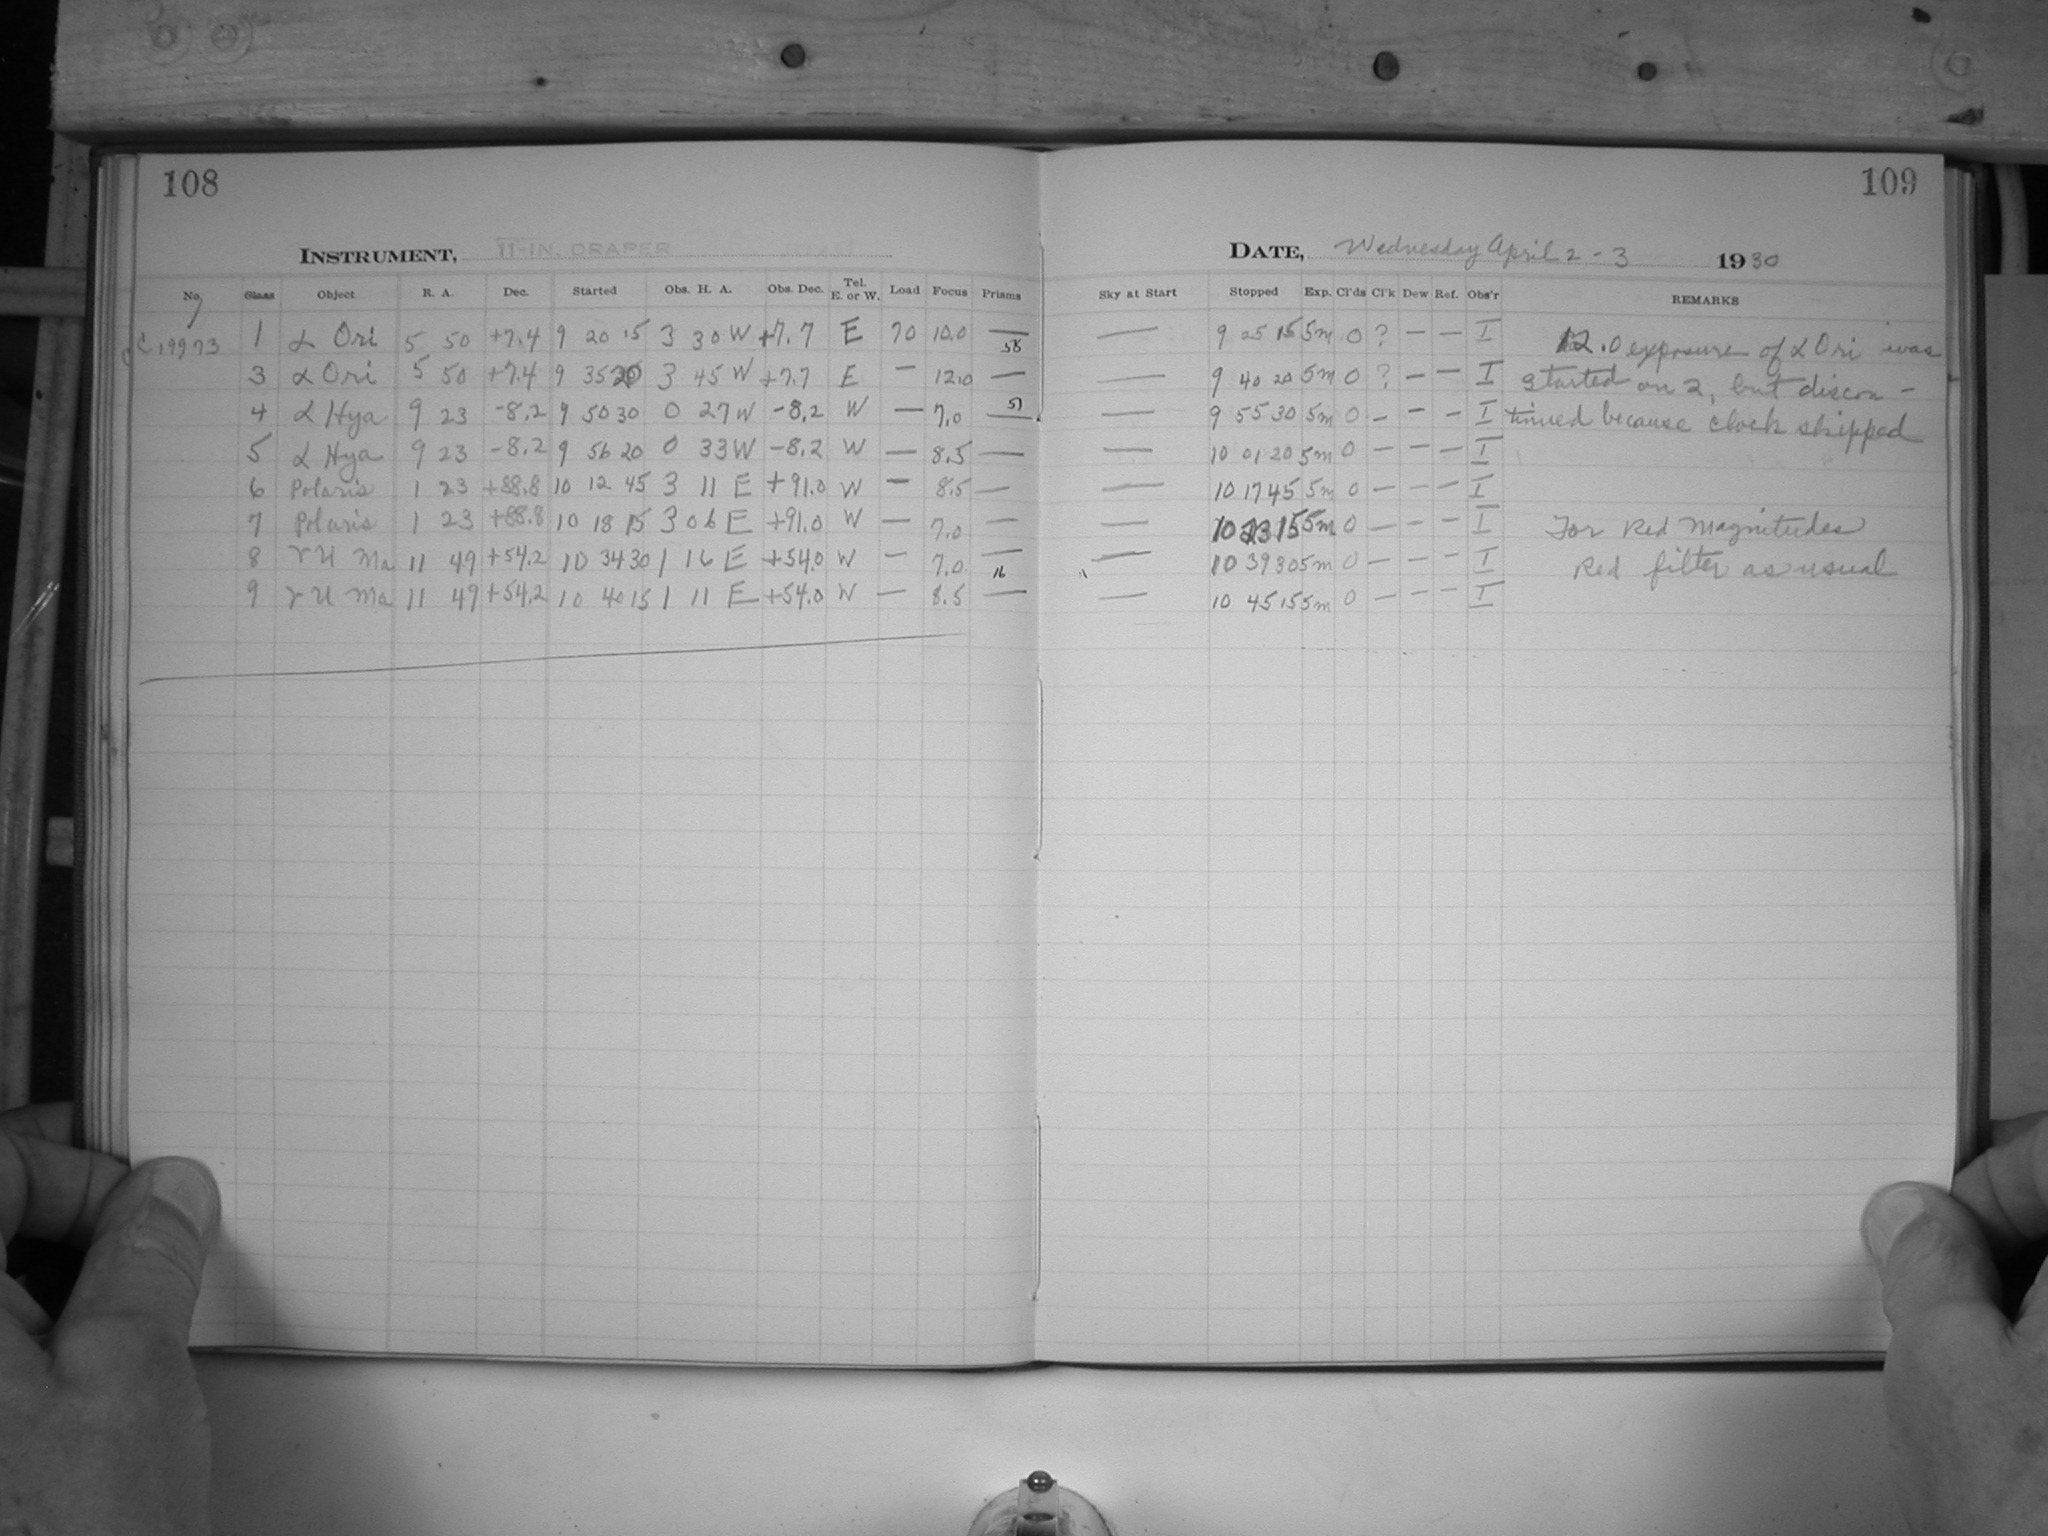 108
109
INSTRUMENT, 11-IN. DRAPER
DATE, Wednesday April 2 - 3 1930
No. Glass Object R. A. Dec. Started Obs. H. A. Obs. Dec. Tel. E. or W. Load Focus Prisms Sky at Start Stopped Exp. Cl'ds Cl'k Dew Ref. Obs'r REMARKS
C 19973 1 α Ori 5 50 +7.4 9 20 15 3 30 W +7.7 E 70 10.0 — — 9 25 15 5m 0 ? — — I 12.0 exposure of α Ori was
58
3 α Ori 5 50 +7.4 9 35 20 3 45 W +7.7 E — 12.0 — — 9 40 20 5m 0 ? — — I started on 2, but discon-
4 α Hya 9 23 -8.2 9 50 30 0 27 W -8.2 W — 7.0 51 — 9 55 30 5m 0 — — — I tinued because clock skipped
5 α Hya 9 23 -8.2 9 56 20 0 33 W -8.2 W — 8.5 — — 10 01 20 5m 0 — — — I
6 Polaris 1 23 +88.8 10 12 45 3 11 E +91.0 W — 8.5 — — 10 17 45 5m 0 — — — I
7 Polaris 1 23 +88.8 10 18 15 3 06 E +91.0 W — 7.0 — — 10 23 15 5m 0 — — — I For Red Magnitudes
8 γ U Ma 11 49 +54.2 10 34 30 1 16 E +54.0 W — 7.0 — — 10 39 30 5m 0 — — — I Red filter as usual
16
9 γ U Ma 11 49 +54.2 10 40 15 1 11 E +54.0 W — 8.5 — — 10 45 15 5m 0 — — — I